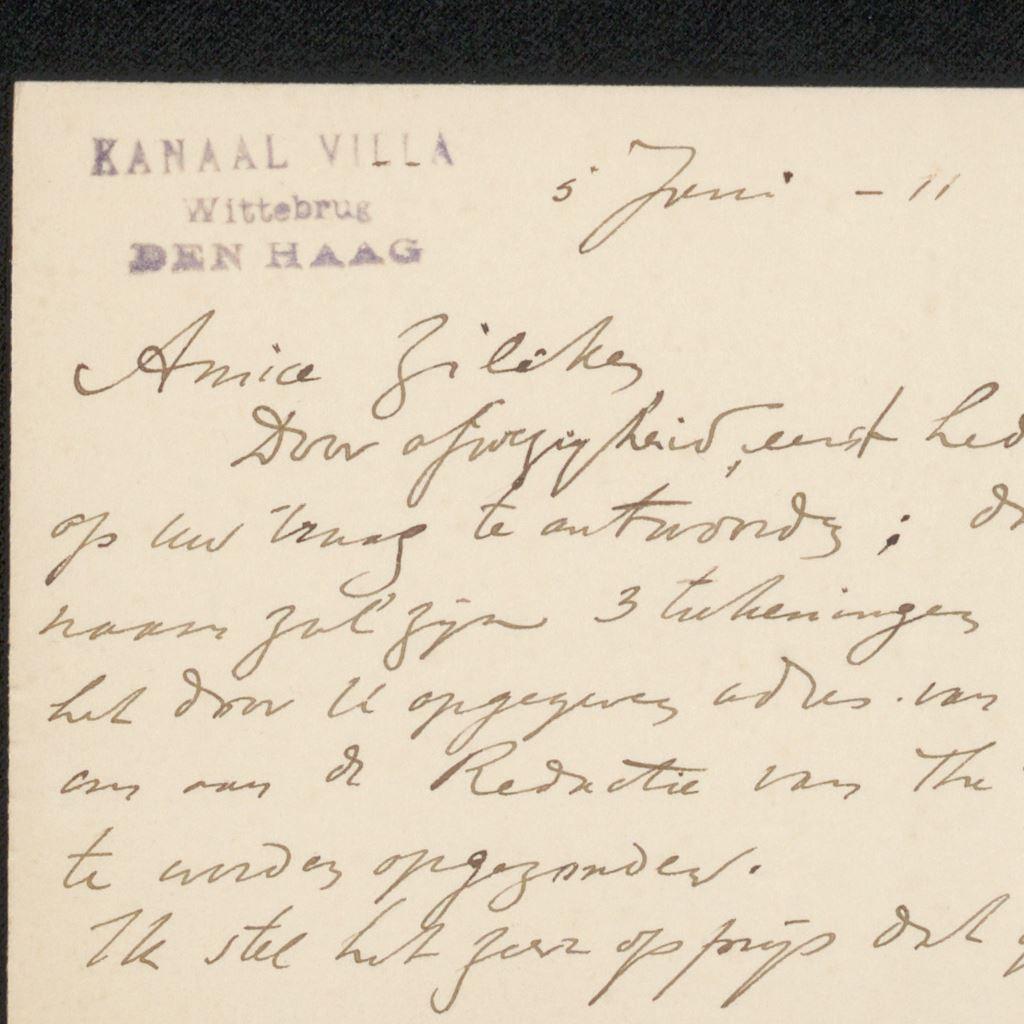 KANAAL VILLA
Wittebrug
DEN HAAG
5 Juni - 11
Amice Zilcken
Door afwezigheid, eerst hed
op uw vraag te antwoorden;
naam zal zijn 3 tekeningen
het door U opgegeven adres van
om aan de Redactie van The
te worden opgezonden.
Ik stel het zeer op prijs dat